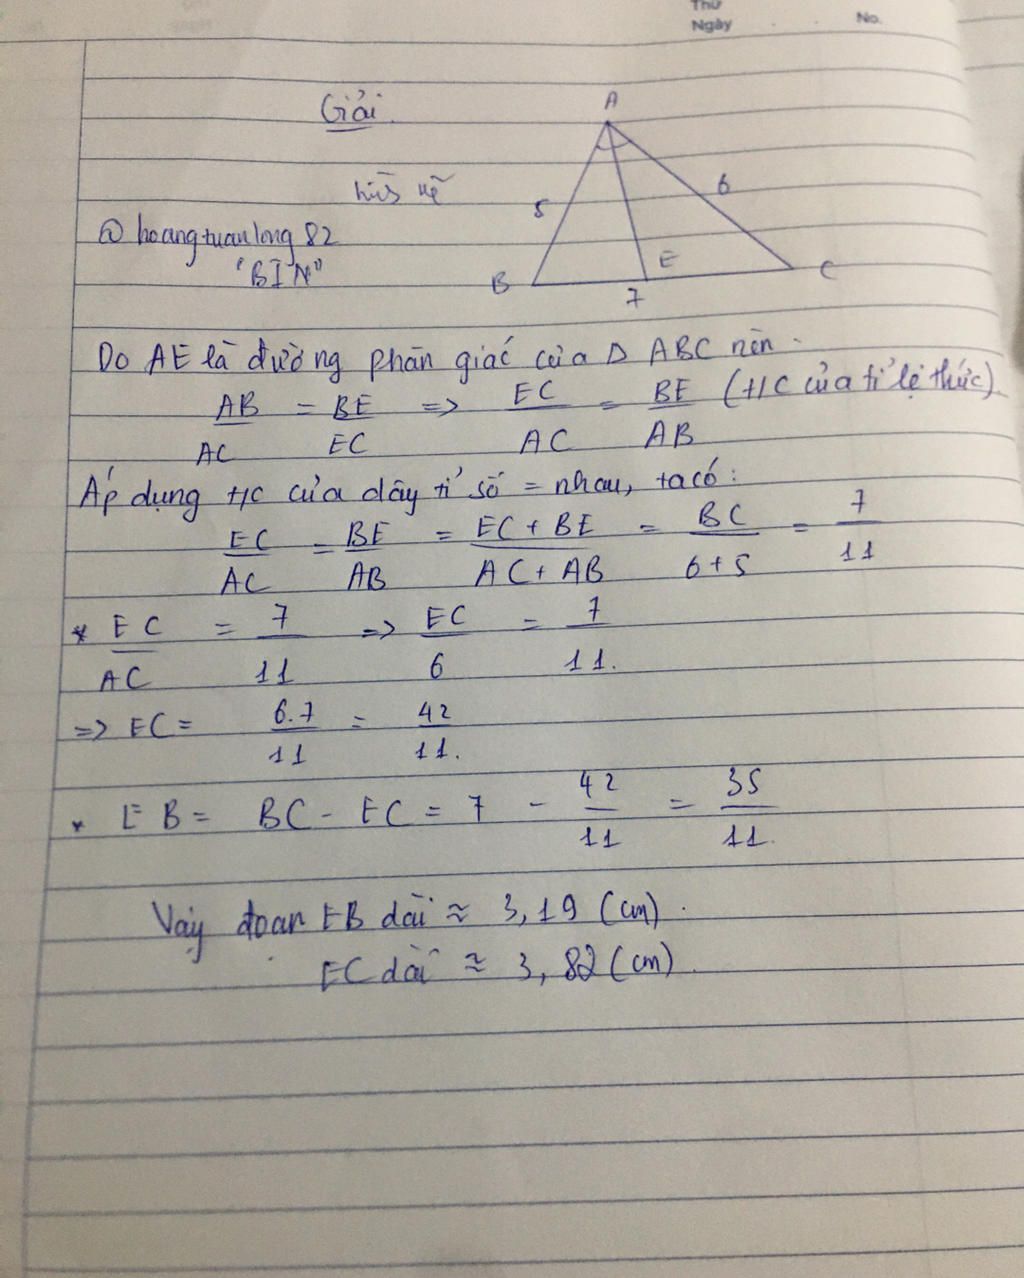 Thứ
Ngày No.
Giải.
A
5 6
@ hoangtuanlong82
"BIN"
B E C
7
Do AE là đường phân giác của Δ ABC nên
AB/AC = BE/EC => EC/AC = BE/AB (t/c của tỉ lệ thức)
Áp dụng t/c của dãy tỉ số = nhau, ta có:
EC/AC = BE/AB = EC + BE/AC + AB = BC/6+5 = 7/11
* EC/AC = 7/11 => EC/6 = 7/11.
=> EC = 6.7/11 = 42/11.
* EB = BC - EC = 7 - 42/11 = 35/11.
Vậy đoạn EB dài ≈ 3,19 (cm).
EC dài ≈ 3,82 (cm).